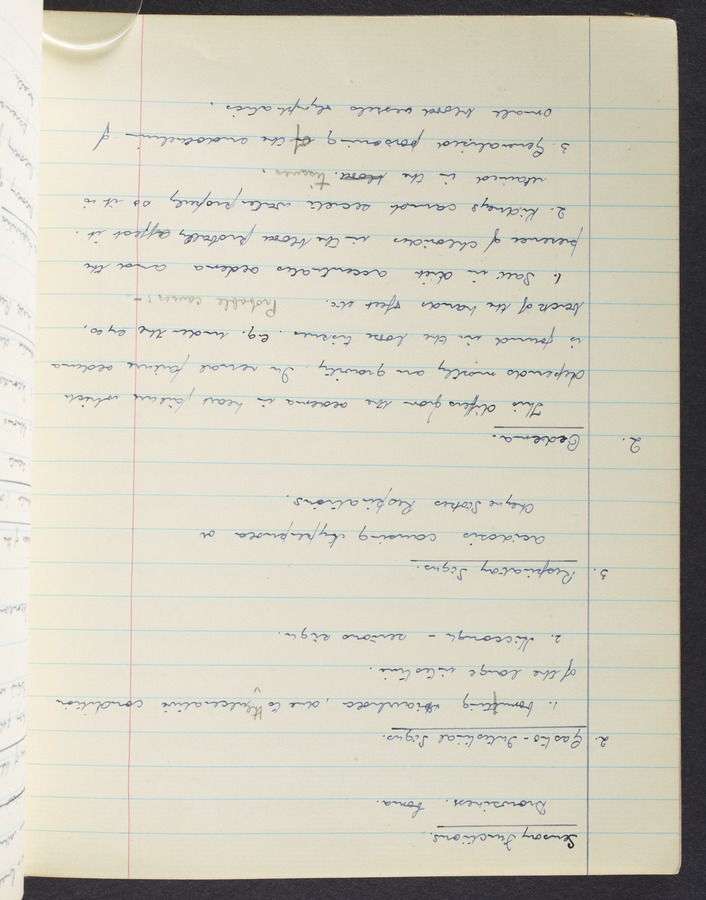 Sensory Functions.
Drowsiness. Coma.
2. Gastro-Intestinal Signs.
1. Vomiting & diarrhoea, due to the ulcerative condition
of the large intestine.
2. Hiccough - serious sign.
3. Respiratory Signs.
acidosis causing hyperpnoea or
Cheyne Stokes Respirations.
2. Oedema.
This differs from the oedema in heart failure which
depends mostly on gravity. In renal failure oedema
is found in the loose tissues. eg. under the eyes,
back of the hands & feet etc. Probable causes:-
1. Salt in diet accentuates oedema and the
presence of chlorides in the blood probably affect it.
2. Kidneys cannot secrete water properly so it is
retained in the blood tissues.
3. Generalised poisoning of the endothelium of
small blood vessels & lymphatics.